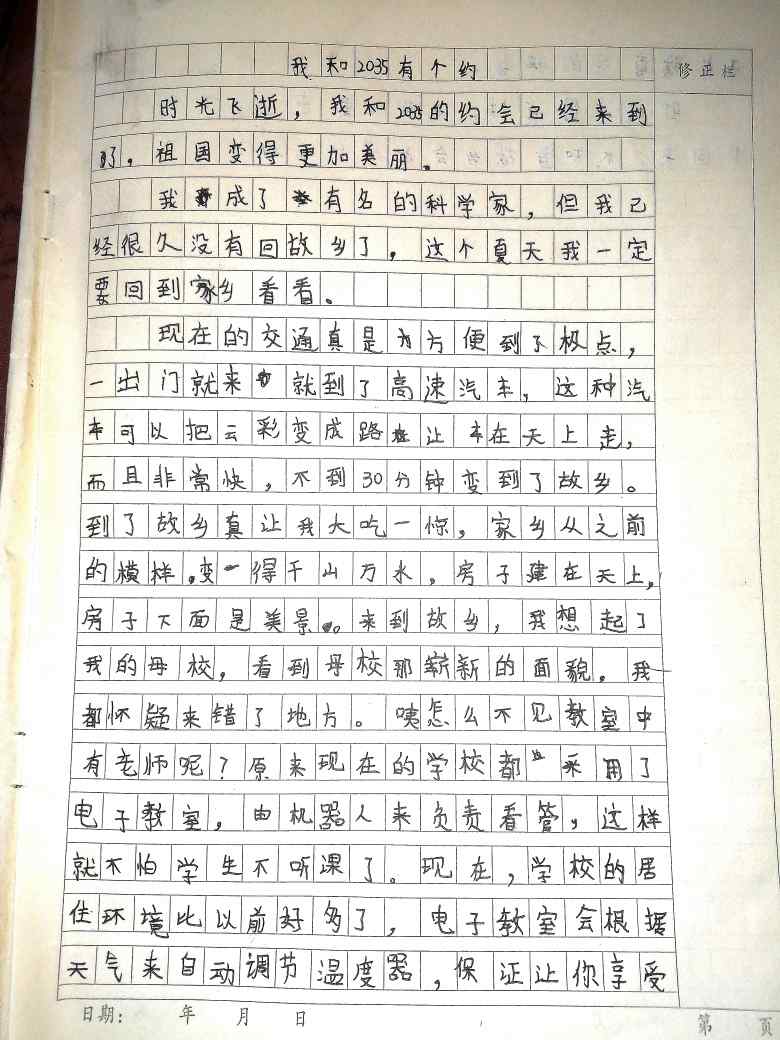 我和2035有个约
修正栏
时光飞逝，我和2035的约会已经来到
了，祖国变得更加美丽。
我成了有名的科学家，但我已
经很久没有回故乡了，这个夏天我一定
要回到家乡看看。
现在的交通真是方便到了极点，
一出门就来就到了高速汽车，这种汽
车可以把云彩变成路让车在天上走，
而且非常快，不到30分钟变到了故乡。
到了故乡真让我大吃一惊，家乡从之前
的横样，变得千山万水，房子建在天上，
房子下面是美景。来到故乡，我想起了
我的母校，看到母校那崭新的面貌。我
都怀疑来错了地方。咦怎么不见教室中
有老师呢？原来现在的学校都采用了
电子教室，由机器人来负责看管，这样
就不怕学生不听课了。现在，学校的居
住环境比以前好多了，电子教室会根据
天气来自动调节温度器，保证让你享受
日期：  年  月  日
第  页